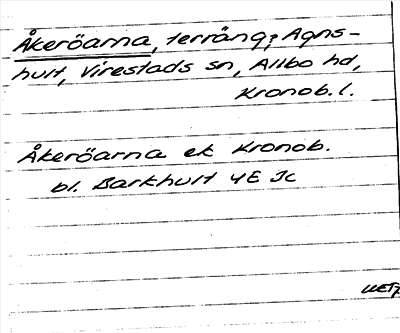 Åkeröarna, terräng; Agns-
hult, Virestads sn, Allbo hd,
Kronob. l.
Åkeröarna ek Kronob.
bl. Barkhult 4E 3c